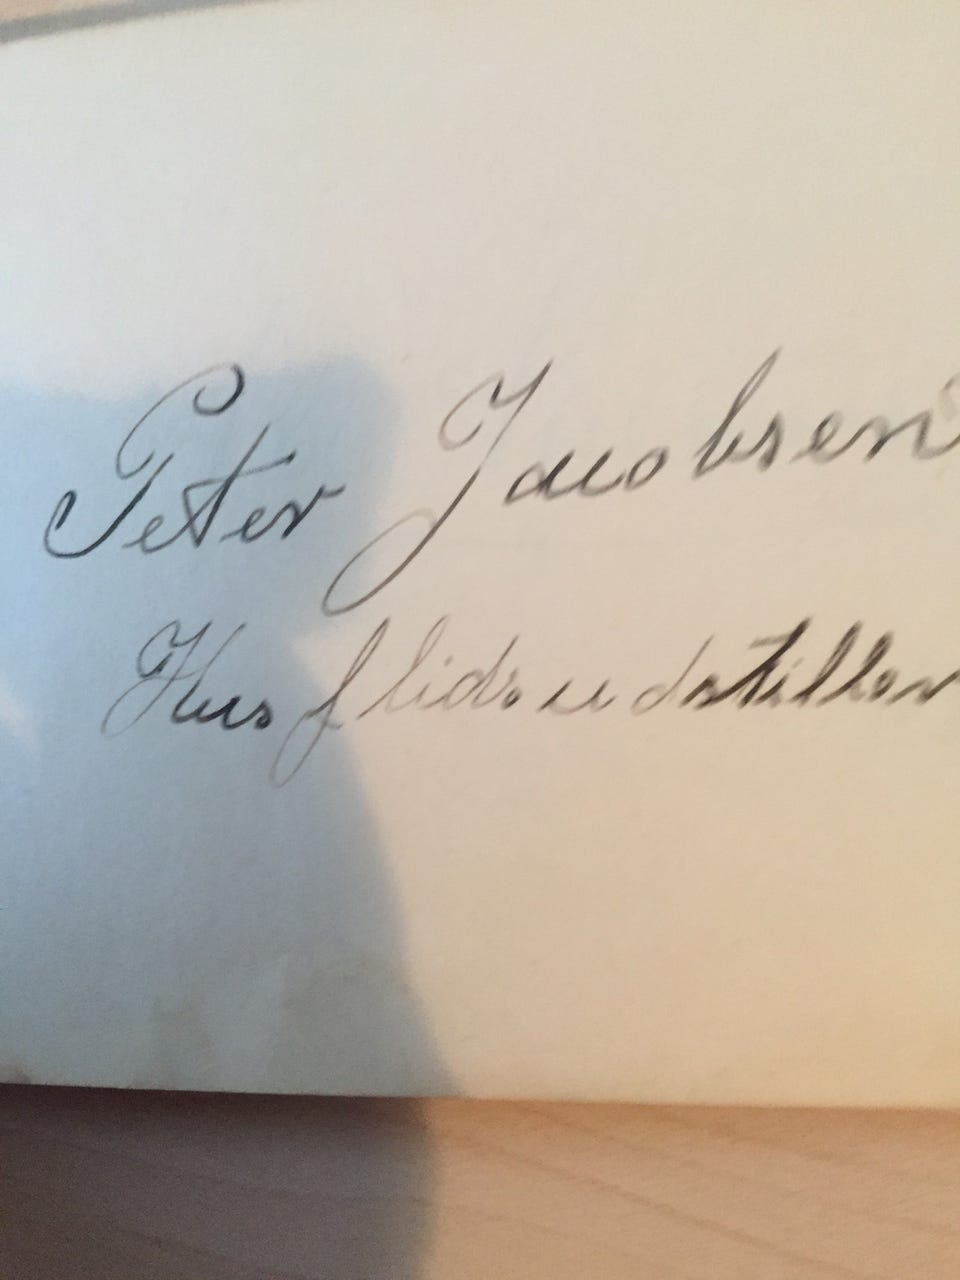 Peter Jacobsen
Husflidsudstiller